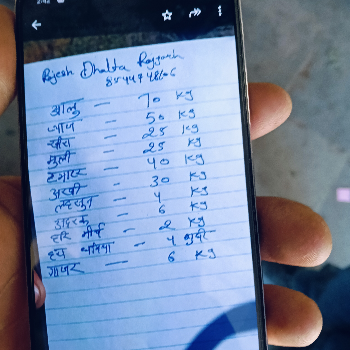 2:42
Rajesh Dhaba Rajgarh
आलू — 70 Kg
प्याज — 50 Kg
खीरा — 25 Kg
मुली — 25 Kg
टमाटर — 40 Kg
अरबी — 30 Kg
लहसुन — 4 Kg
अदरक — 6 Kg
हरि मीर्च — 2 Kg
हरा धनिया — 4 गुच्छी
गाजर — 6 Kg